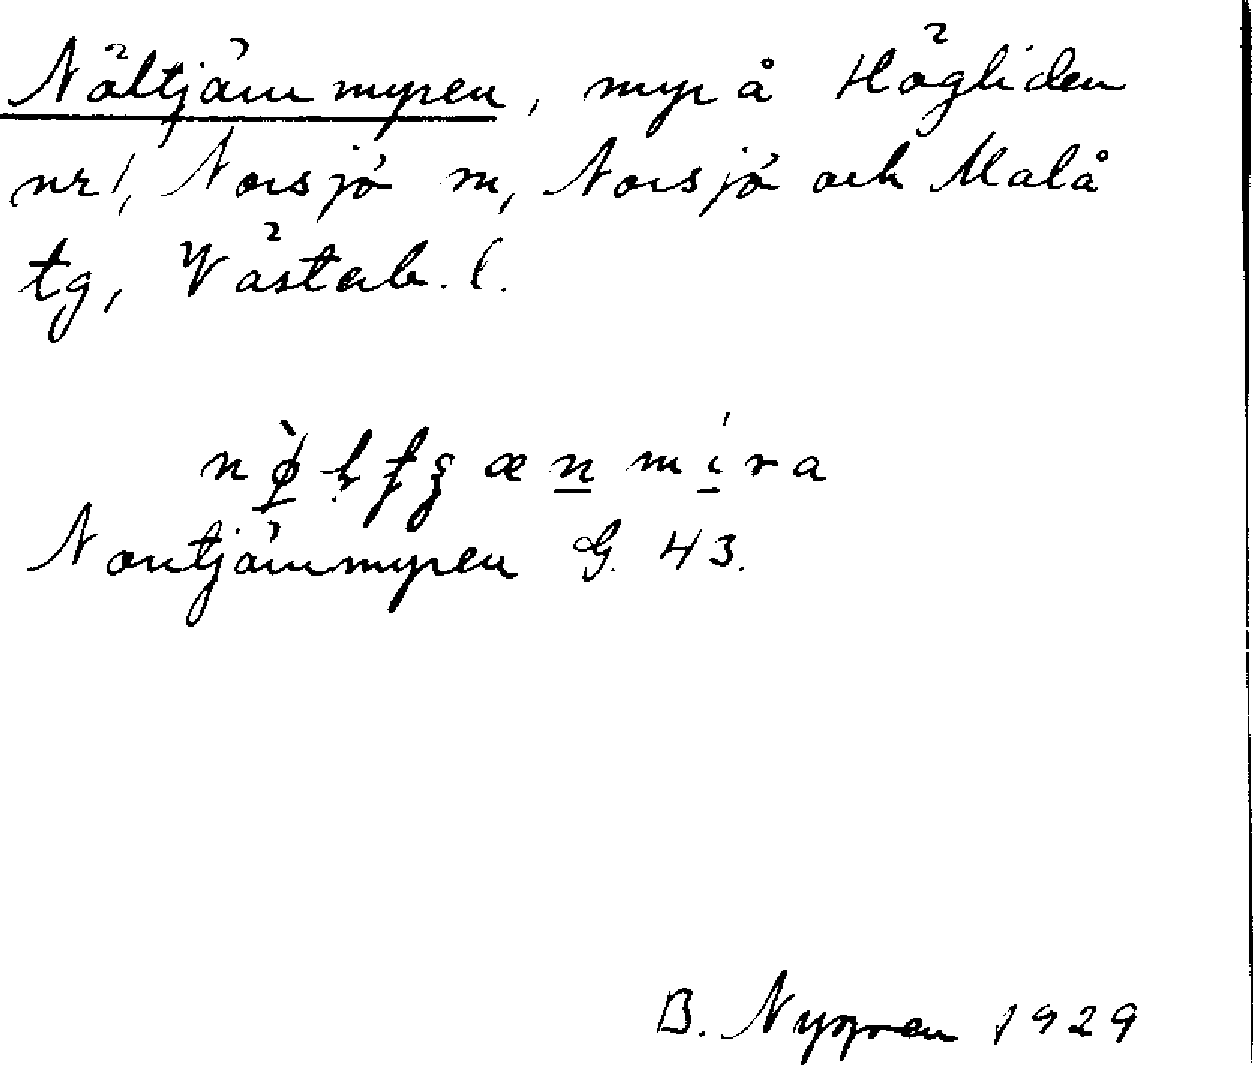 Nöltjärnmyren, myr å Högliden
nr 1, Norsjö sn, Norsjö och Malå
tg, Västerb. l.
Norrtjärnmyren G. 43.
B. Nygren 1929